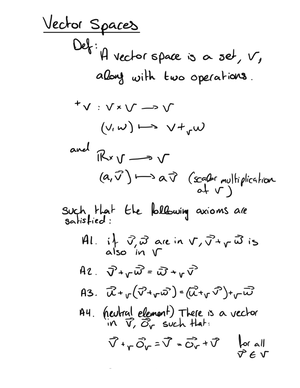 Vector Spaces
Def:
A vector space is a set, V,
along with two operations.
+v : V × V → V
(v, w) ↦ v +ᵥ w
and
ℝ × V → V
(a, v⃗) ↦ a v⃗ (scalar multiplication
of V)
such that the following axioms are
satisfied:
A1. if v⃗, w⃗ are in V, v⃗ +ᵥ w⃗ is
also in V
A2. v⃗ +ᵥ w⃗ = w⃗ +ᵥ v⃗
A3. u⃗ +ᵥ (v⃗ +ᵥ w⃗) = (u⃗ +ᵥ v⃗) +ᵥ w⃗
A4. (neutral element) There is a vector
in V⃗, O⃗ᵥ such that:
v⃗ +ᵥ O⃗ᵥ = v⃗ = O⃗ᵥ + v⃗ for all
v⃗ ∈ V